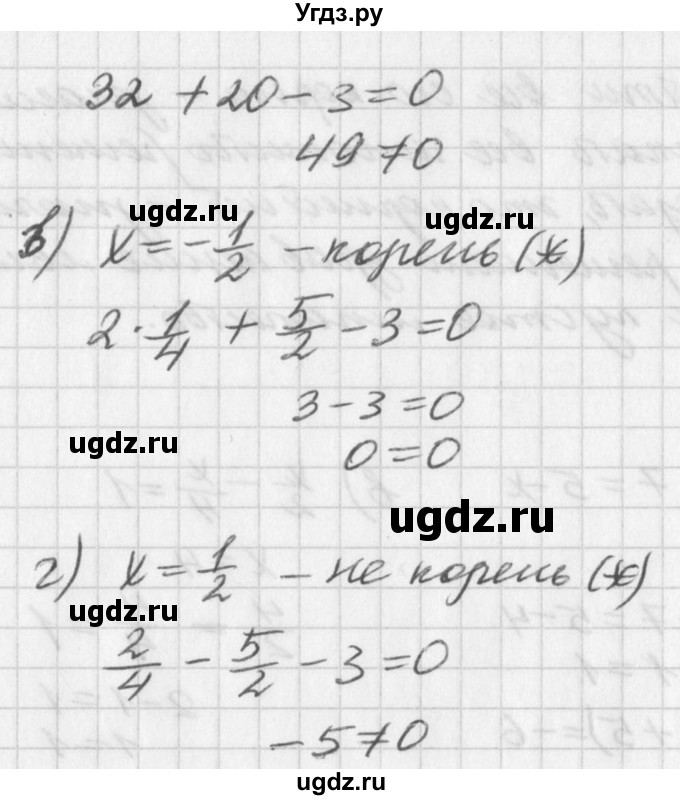 Угдз.ру
32 + 20 - 3 = 0
49 ≠ 0
ugdz.ru ugdz.ru
в) x = -1/2 - корень (*)
2 · 1/4 + 5/2 - 3 = 0
3 - 3 = 0
ugdz.ru
0 = 0
ugdz.ru
г) x = 1/2 - не корень (*)
ugdz.ru
2/4 - 5/2 - 3 = 0
-5 ≠ 0
ugdz.ru